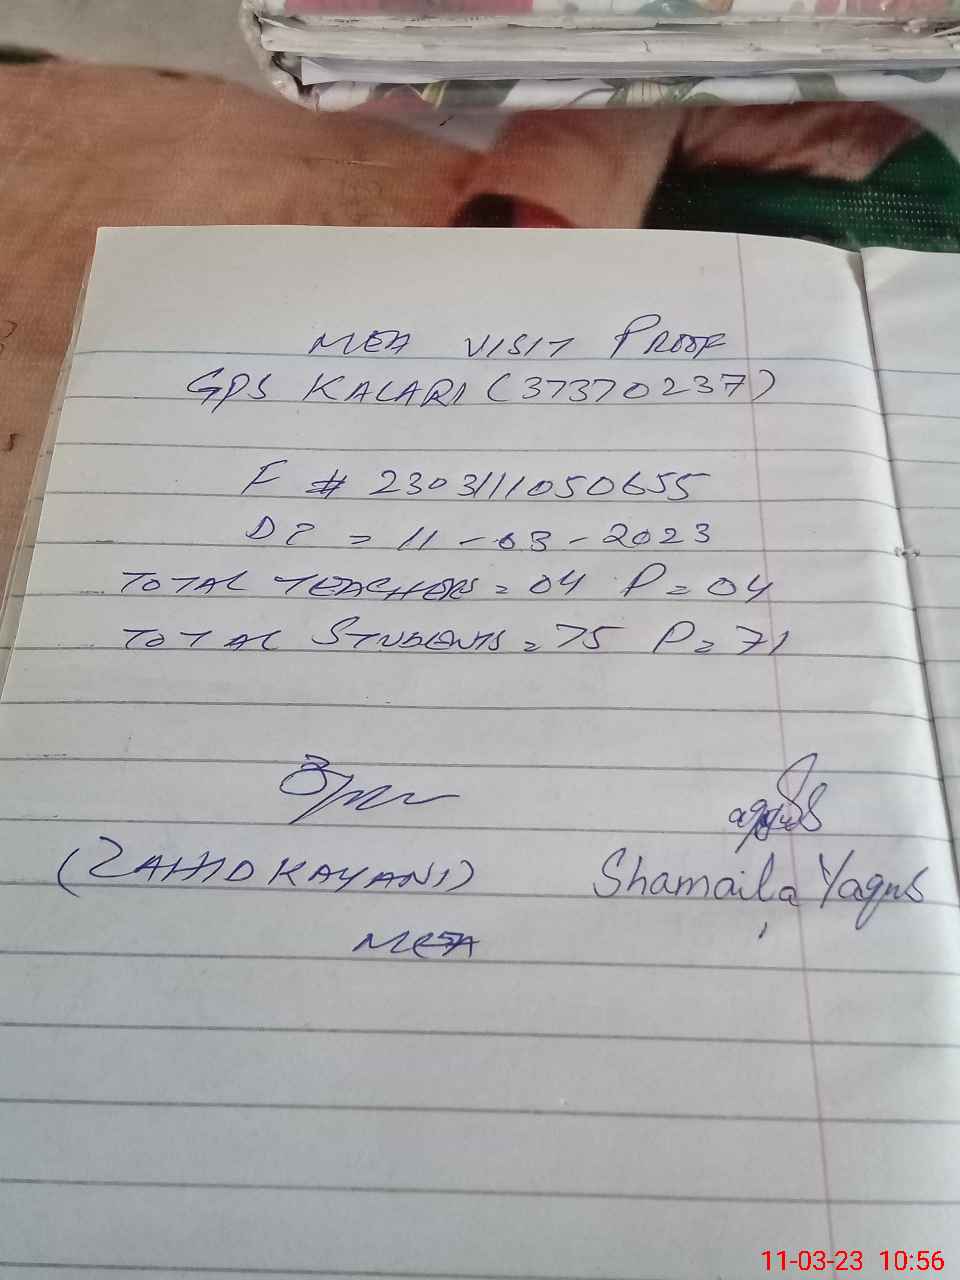 MEA VISIT PROOF
GPS KALARI (37370237)
F # 2303111050655
DT = 11-03-2023
TOTAL TEACHERS = 04 P = 04
TOTAL STUDENTS = 75 P = 71
(ZAHID KAYANI)
Shamaila Yaqub
MEA
11-03-23 10:56